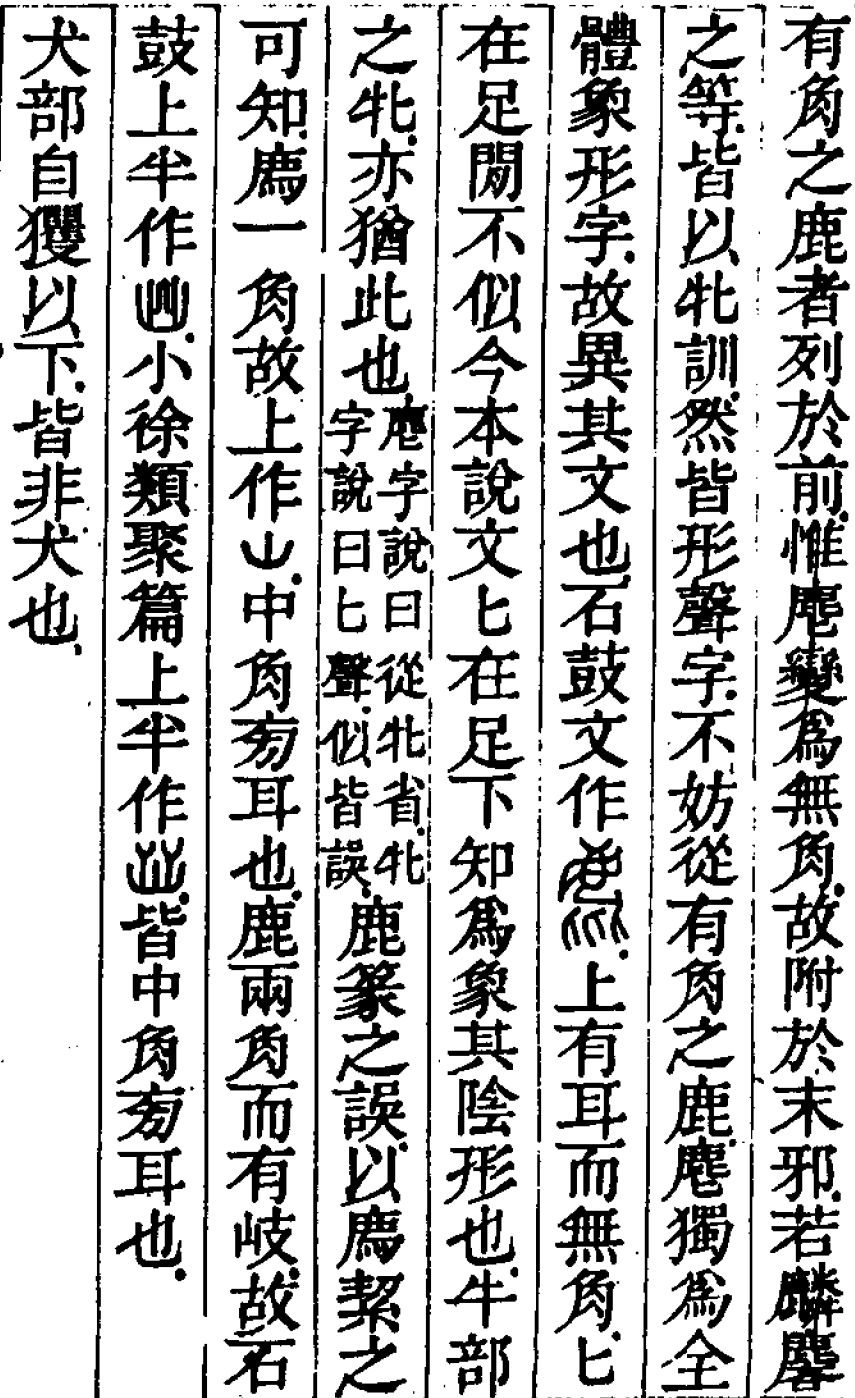 有角之鹿者列於前惟麀變爲無角故附於末邪若麟麔
之等皆以牝訓然皆形聲字不妨從有角之鹿麀獨爲全
體象形字故異其文也石鼓文作上有耳而無角匕
在足閒不似今本說文匕在足下知爲象其陰形也牛部
之牝亦猶此也麀字說曰從牝省牝字說曰匕聲似皆誤鹿篆之誤以廌絜之
可知廌一角故上作中角㫄耳也鹿兩角而有岐故石
鼓上半作小徐類聚篇上半作皆中角㫄耳也
犬部自玃以下皆非犬也